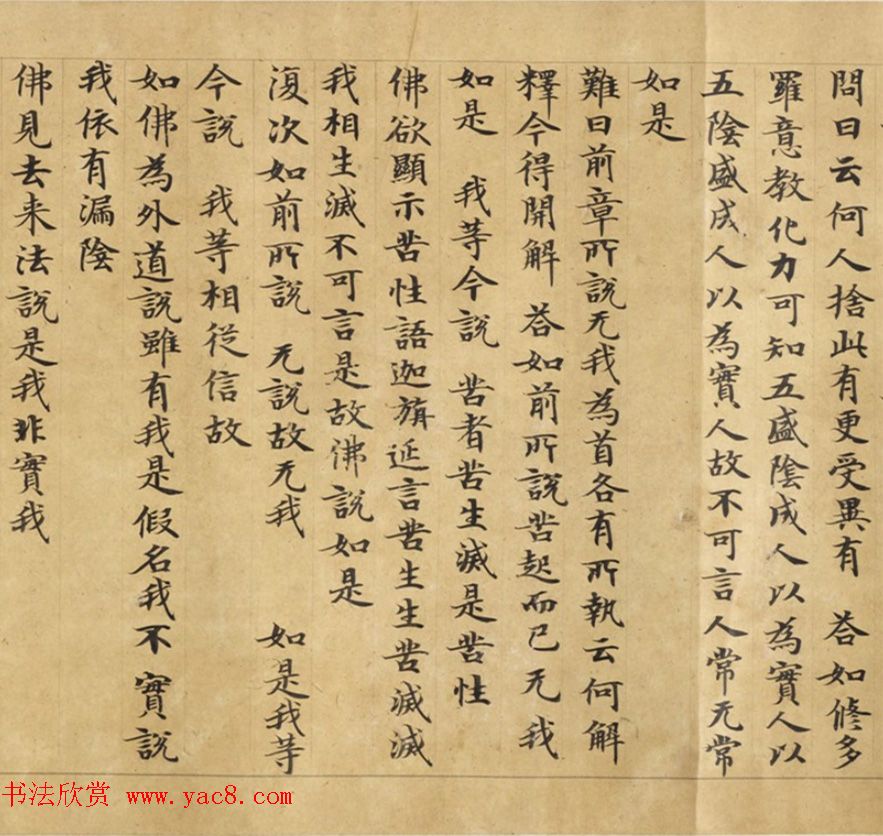 問曰云何人捨此有更受異有　答如脩多
羅意教化力可知五盛陰成人以為實人以
五陰盛成人以為實人故不可言人常无常
如是
難曰前章所說无我為首各有所執云何解
釋今得開解　答如前所說苦起而已无我
如是　我等今說　苦者苦生滅是苦性
佛欲顯示苦性語迦旃延言苦生生苦滅滅
我相生滅不可言是故佛說如是
復次如前所說　无說故无我　　如是我等
今說　我等相從信故
如佛為外道說雖有我是假名我不實說
我依有漏陰
佛見去来法說是我非實我
书法欣赏 www.yac8.com